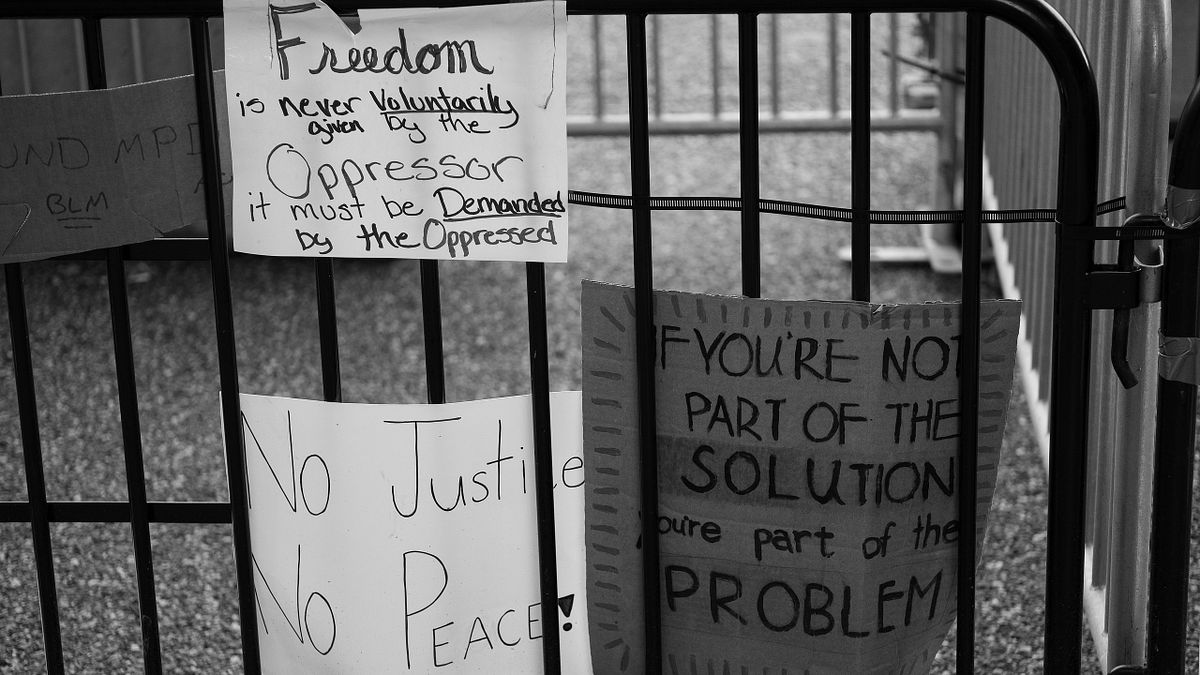 UND MPD
BLM
Freedom
is never Voluntarily
given by the
Oppressor
it must be Demanded
by the Oppressed
No Justice
No PEACE!
IF YOU'RE NOT
PART OF THE
SOLUTION
you're part of the
PROBLEM